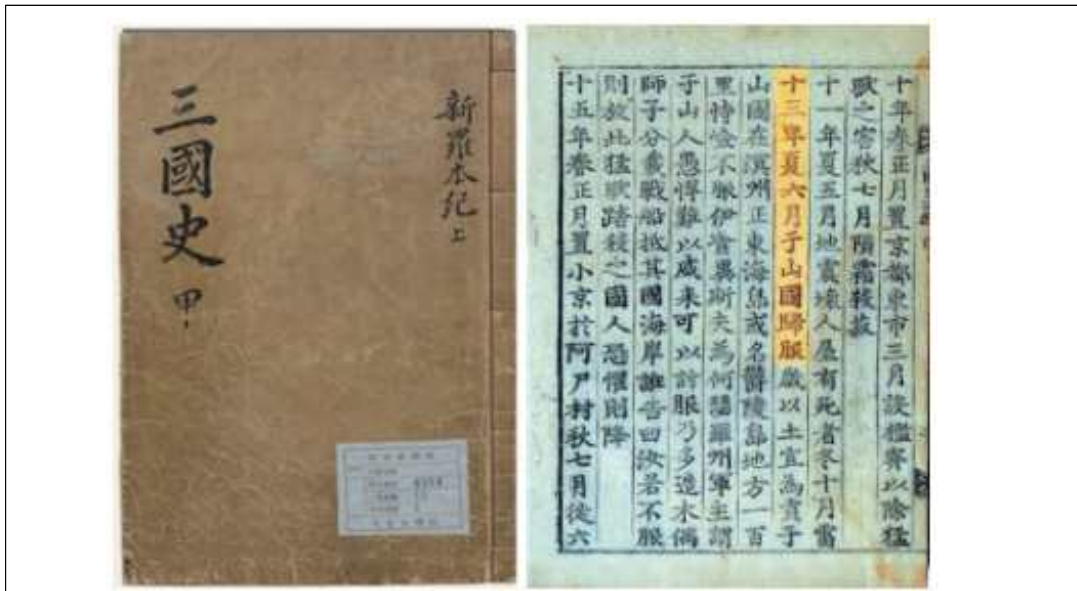 三國史 甲
新羅本紀 上
十年春正月置京都東市三月設檻穽以除猛
獸之害秋七月隕霜殺菽
十一年夏五月地震壞人屋有死者冬十月雷
十三年夏六月于山國歸服歲以土宜為貢于
山國在溟州正東海島或名欝陵島地方一百
里恃嶮不服伊飡異斯夫為何瑟羅州軍主謂
于山人愚悍難以威来可以計服乃多造木偶
師子分載戰船抵其國海岸誑告曰汝若不服
則放此猛獸踏殺之國人恐懼則降
十五年春正月置小京於阿尸村秋七月徙六